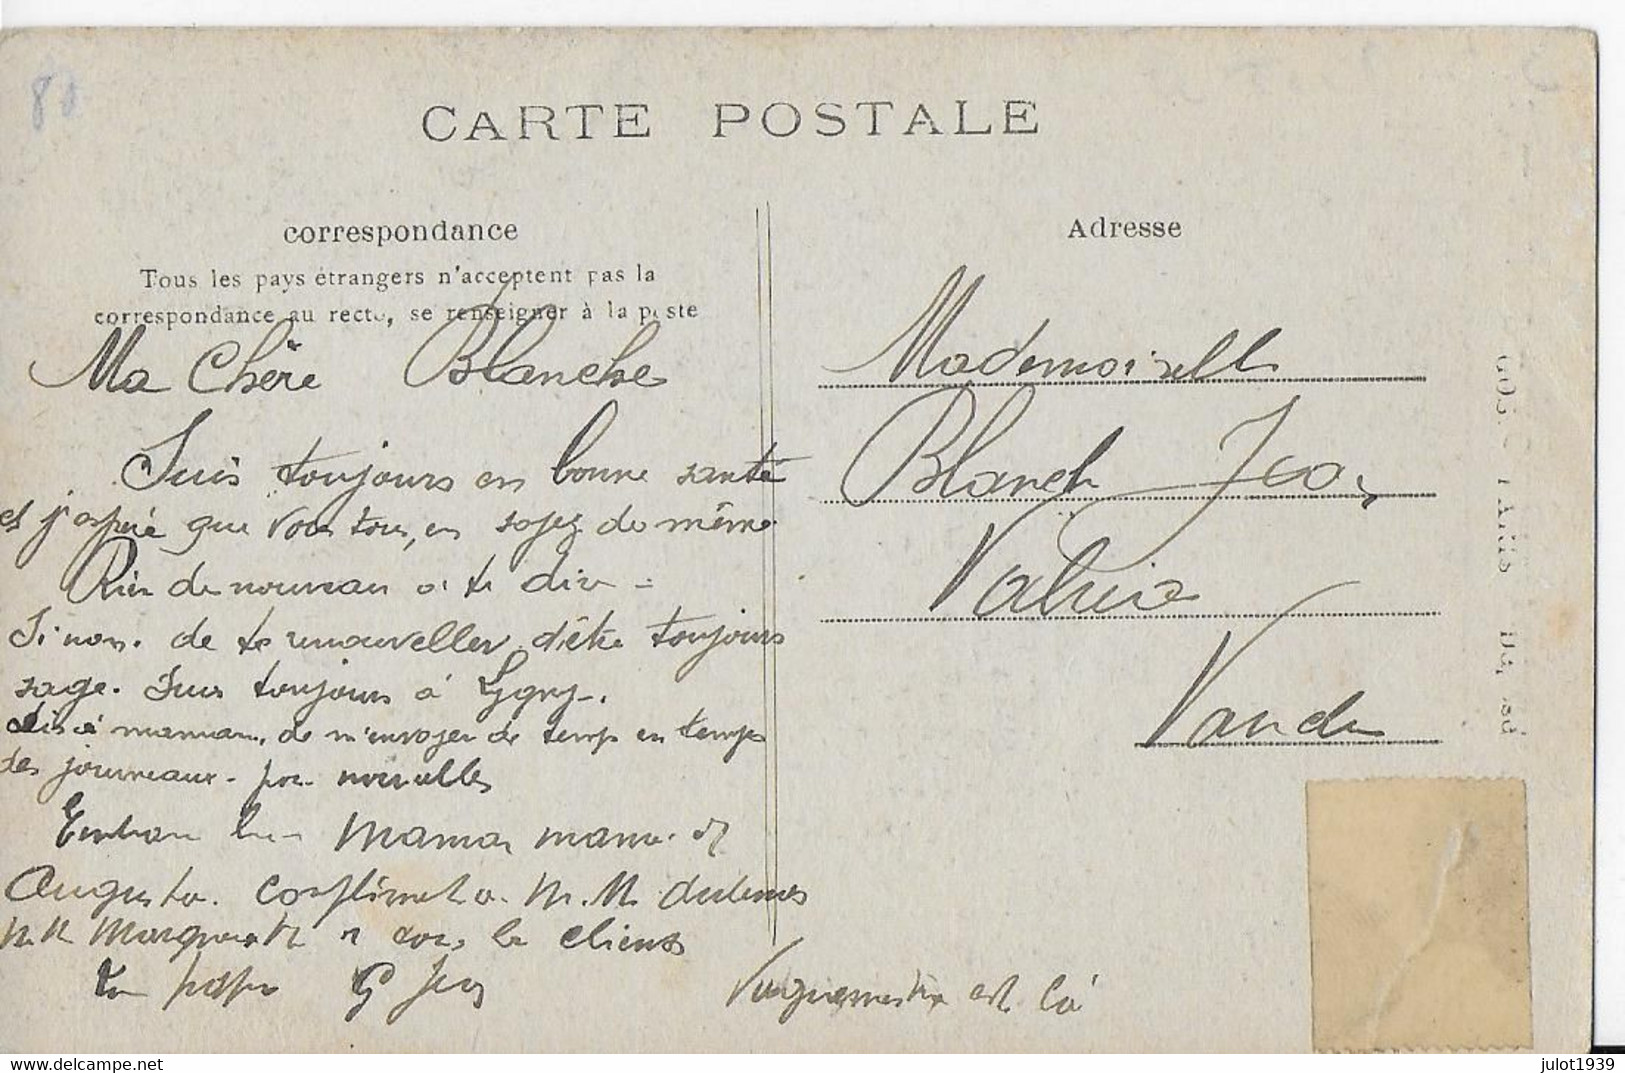 80
CARTE POSTALE
correspondance
Tous les pays étrangers n'acceptent pas la
correspondance au recto, se renseigner à la poste
Ma Chère Blanche
Suis toujours en bonne santé
et j'espère que vous tous, en soyez de même
Rien de nouveau à te dire =
Si non. de te renouveller d'être toujours
sage. Suis toujours à
dis à maman, de m'envoyer de temps en temps
des journeaux - pour nouvelles
Embrasse bien maman mame et
Augusta. Compliments à M. M.
M. M. Marguerite et tous les clients
Ton papa G Jean
Vaguemestre est là
Adresse
Mademoiselle
Blanch Jean
Valréas
Vaucluse
julot1939